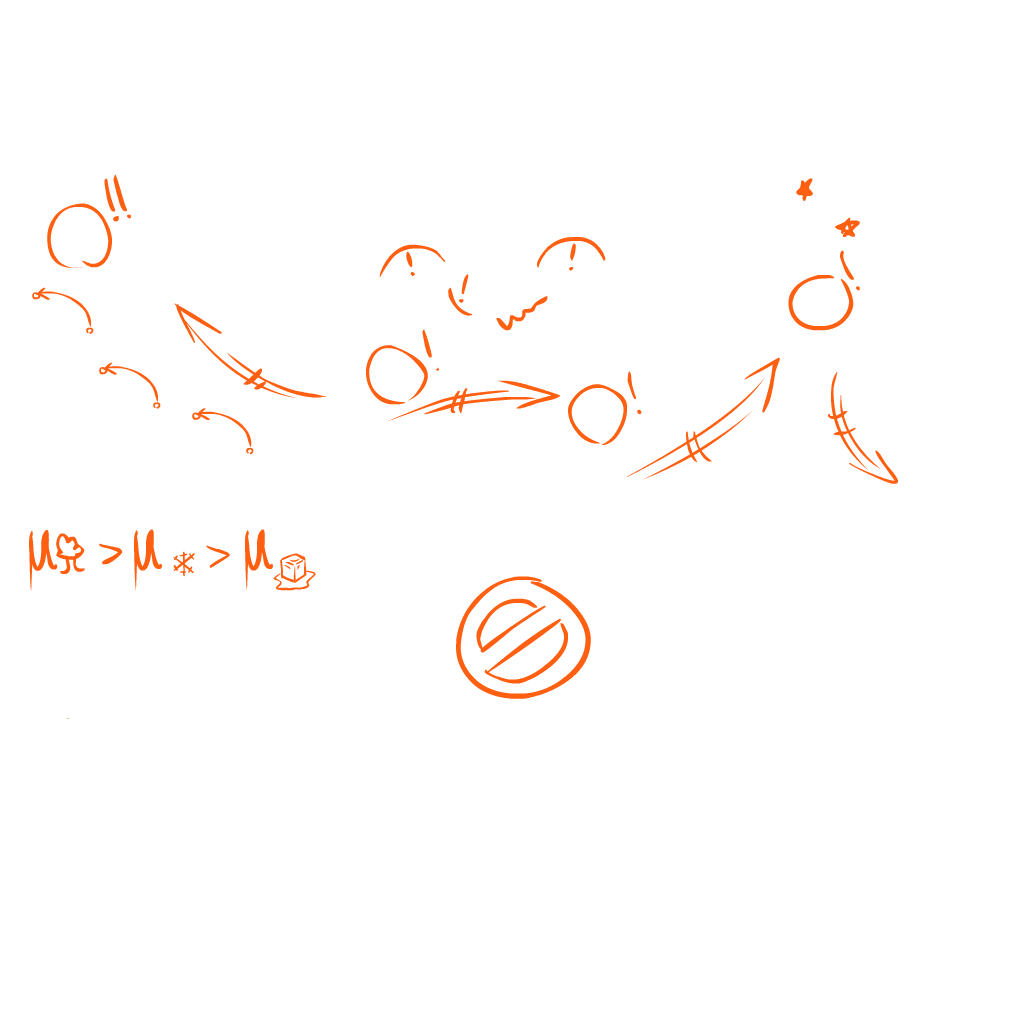 !!
!
!
!
!
!
!
μ > μ > μ